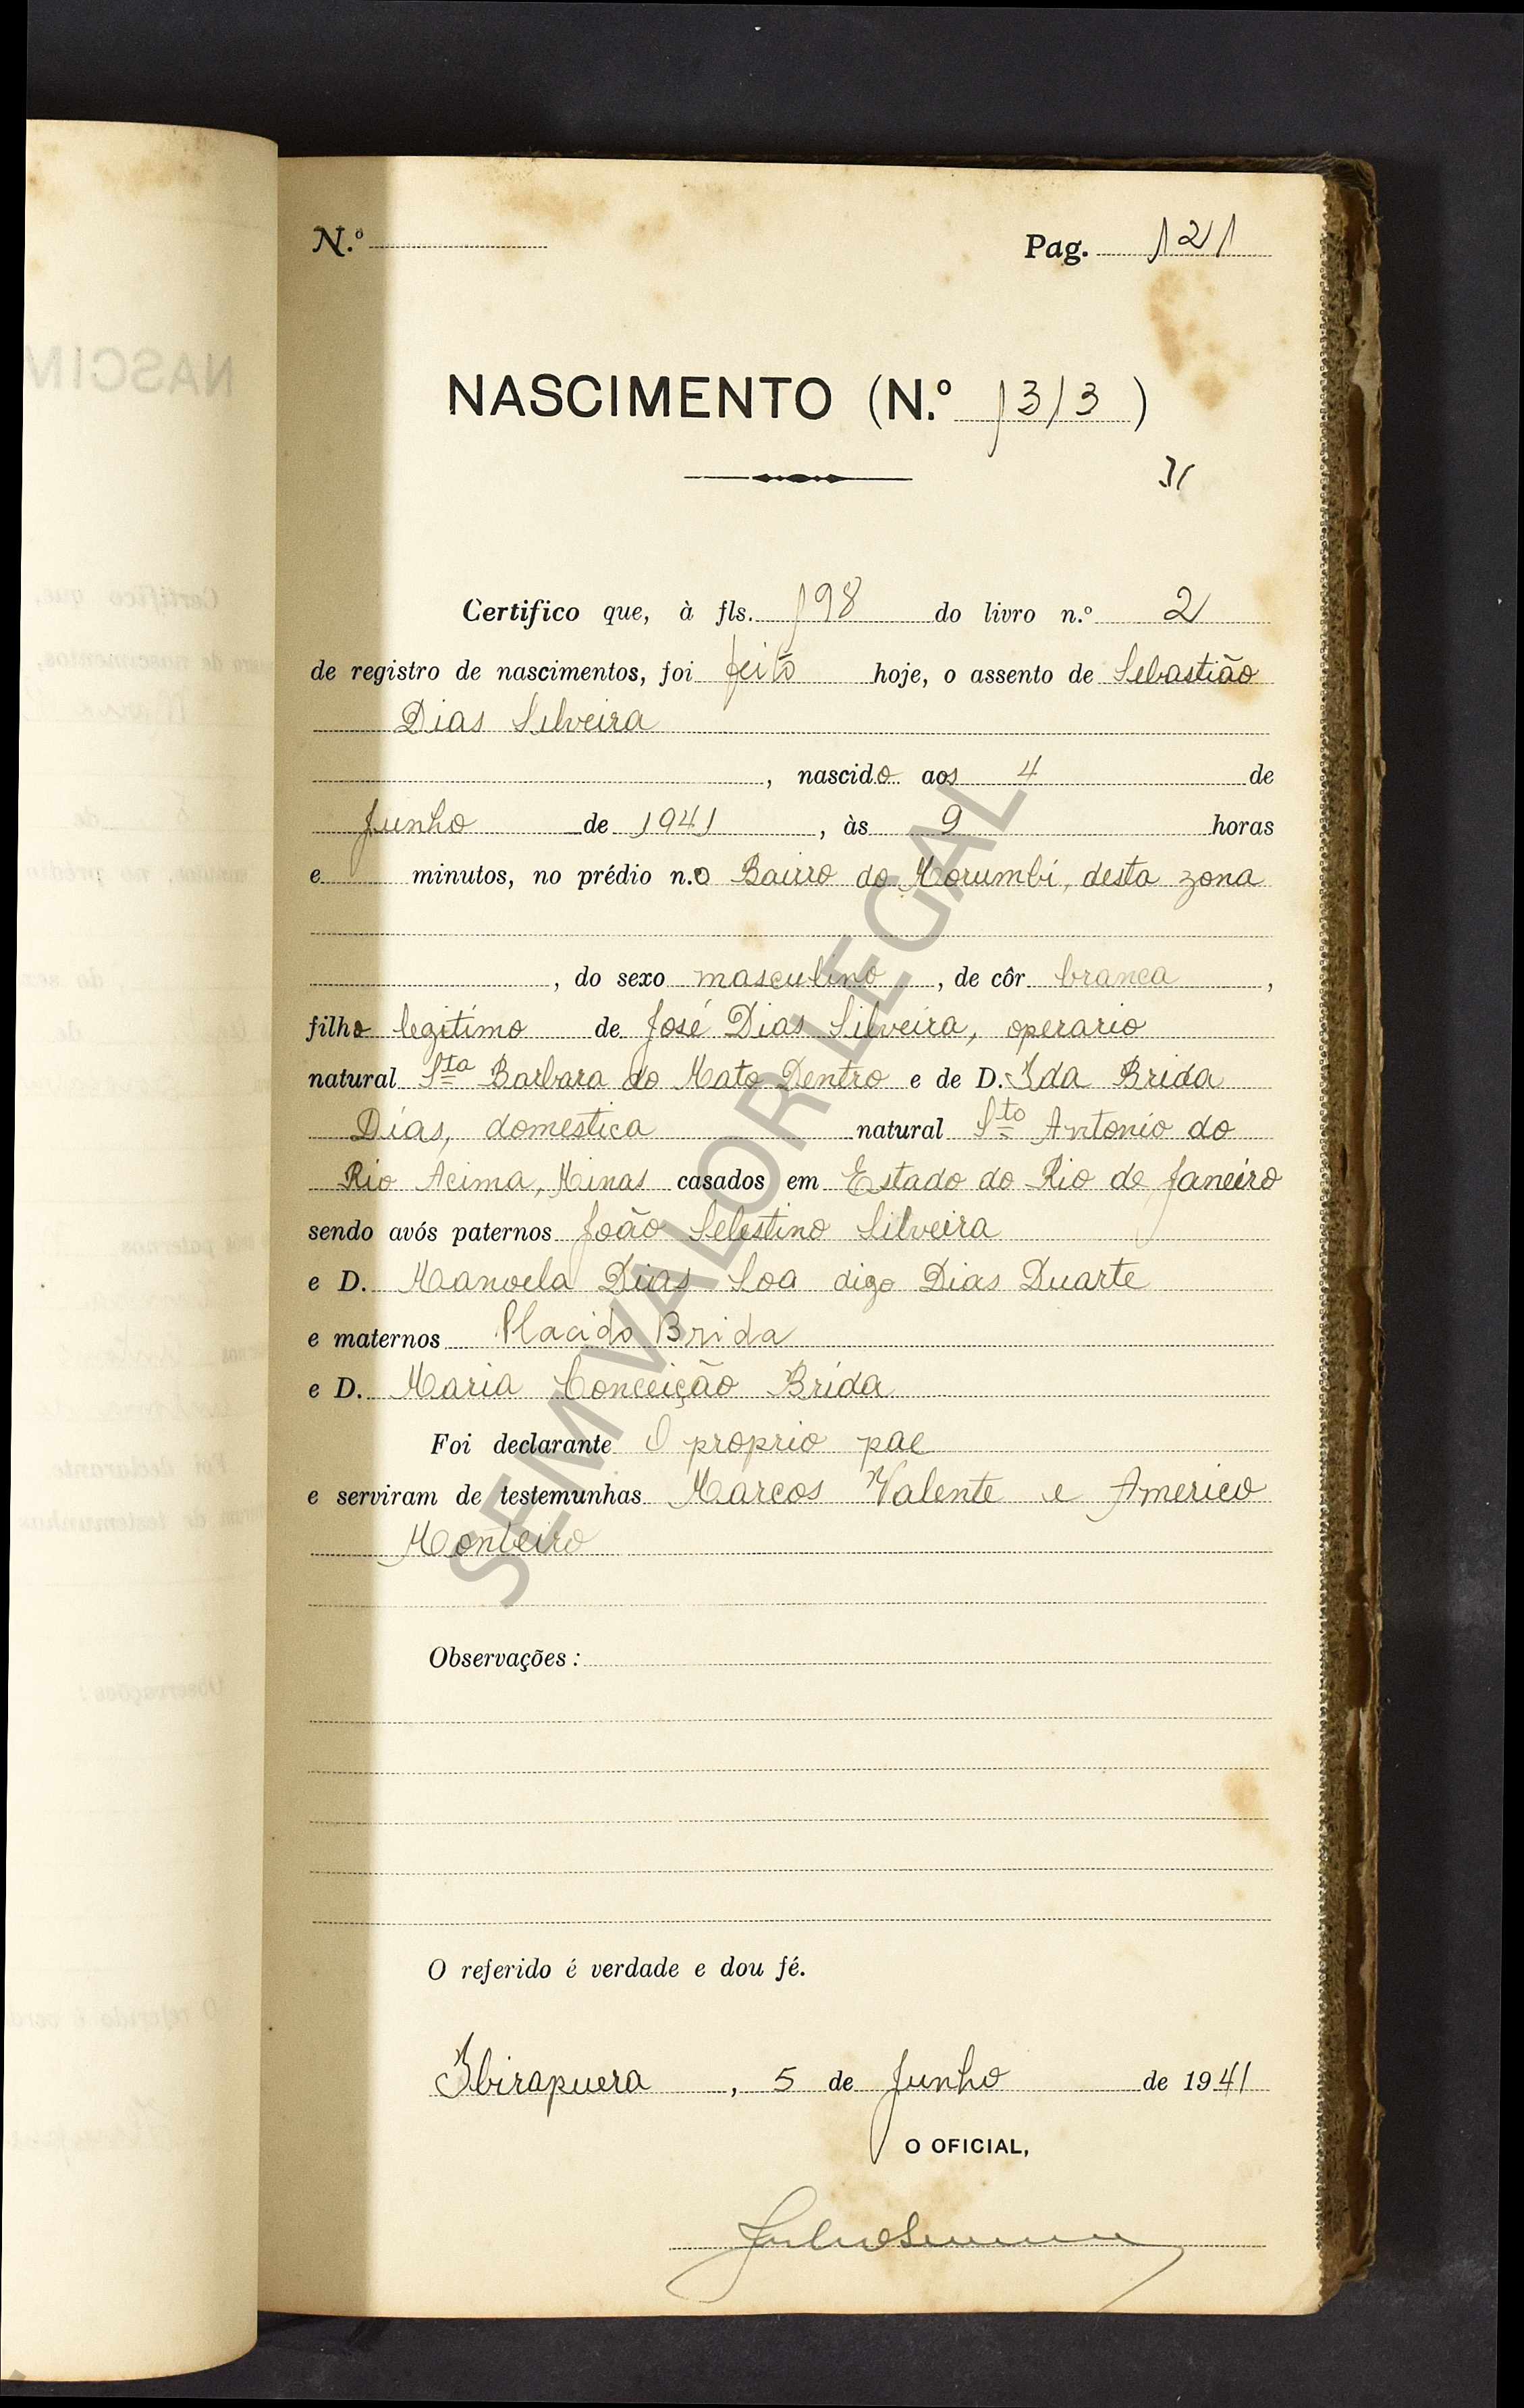 N.º Pag. 121
NASCIMENTO (N.º 1313)
31
Certifico que, à fls. 198 do livro n.º 2
de registro de nascimentos, foi feito hoje, o assento de Sebastião
Dias Silveira
, nascido aos 4 de
Junho de 1941, às 9 horas
e minutos, no prédio n.o Bairro do Morumbi, desta zona
, do sexo masculino, de côr branca,
filho legitimo de José Dias Silveira, operario
natural Sta Barbara do Mato Dentro e de D. Ida Brida
Dias, domestica natural Sto Antonio do
Rio Acima, Minas casados em Estado do Rio de Janeiro
sendo avós paternos João Selestino Silveira
e D. Manoela Dias Loa digo Dias Duarte
e maternos Placido Brida
e D. Maria Conceição Brida
Foi declarante O proprio pae
e serviram de testemunhas Marcos Valente e Americo
Monteiro
Observações:
O referido é verdade e dou fé.
Ibirapuera, 5 de Junho de 1941
O OFICIAL,
SEM VALOR LEGAL